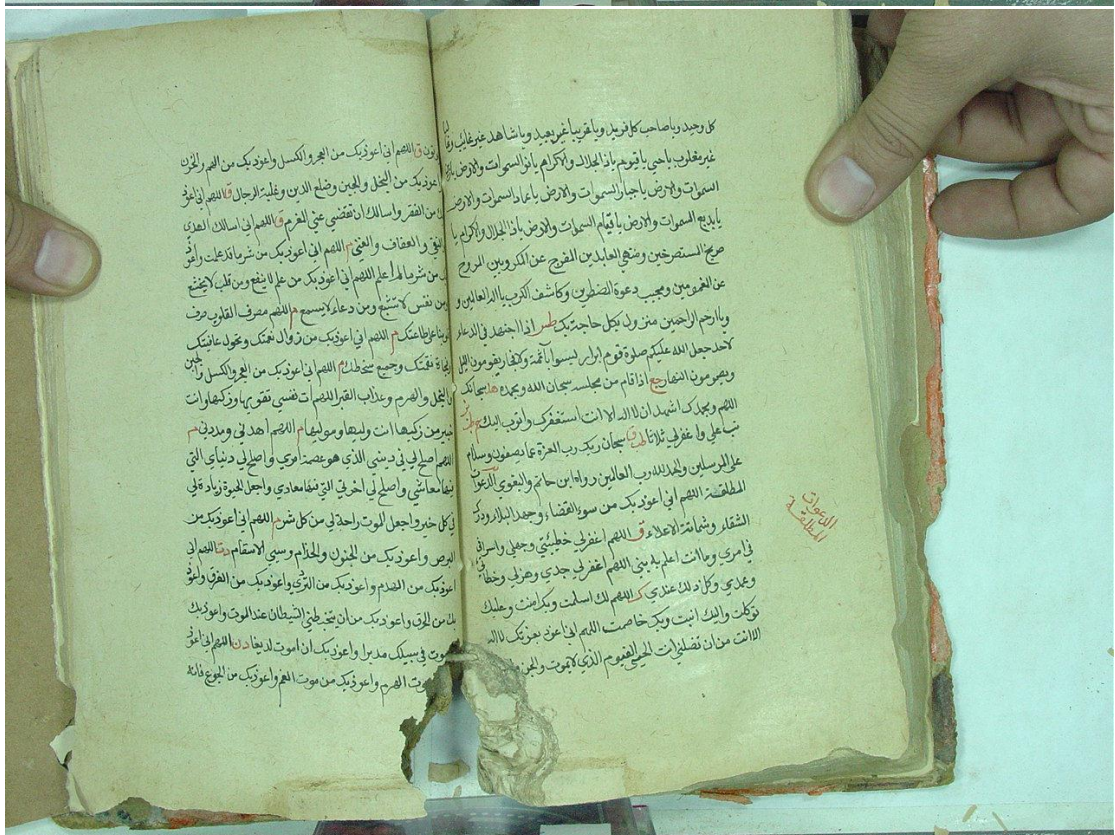 كل وحيد ويا صاحب كل فريد ويا قريبا غير بعيد ويا شاهد غير غائب ويا غالبا
غير مغلوب يا حي يا قيوم يا ذا الجلال والاكرام يا نور السموات والارض يا زين
السموات والارض يا جبار السموات والارض يا عماد السموات والارض
يا بديع السموات والارض يا قيام السموات والارض يا ذا الجلال والاكرام يا
صريخ المستصرخين ومنتهى العابدين المفرج عن المكروبين المروح
عن المغمومين ومجيب دعوة المضطرين وكاشف الكرب يا اله العالمين و
ويا ارحم الراحمين منزول بكل حاجة بك طس اذا اجتهد في الدعاء
لاحد جعل الله عليكم صلوة قوم ابرار ليسوا باثمة ولا فجار يقومون الليل
ويصومون النهار جع اذا قام من مجلسه سبحان الله وبحمده سبحانك
اللهم وبحمدك اشهد ان لا اله الا انت استغفرك واتوب اليك
تب علي واغفر لي ثلاثا سبحان ربك رب العزة عما يصفون وسلام
على المرسلين والحمد لله رب العالمين رواه ابن حاتم والبغوي الدعوات
المطلقة اللهم اني اعوذ بك من سوء القضاء وجهد البلاء ودرك
الشقاء وشماتة الاعداء ق اللهم اغفر لي خطيئتي وجهلي واسرافي
في امري وما انت اعلم به مني اللهم اغفر لي جدي وهزلي وخطائي
وعمدي وكل ذلك عندي اللهم لك اسلمت وبك امنت وعليك
توكلت واليك انبت وبك خاصمت اللهم اني اعوذ بعزتك لا اله
الا انت من ان تضلني انت الحي القيوم الذي لا يموت والجن
الدعوات
المطلقة
ق اللهم اني اعوذ بك من العجز والكسل واعوذ بك من الهم والحزن
واعوذ بك من البخل والجبن وضلع الدين وغلبة الرجال ق اللهم اني اعوذ
بك من الفقر واسالك ان تقضي عني المغرم ق اللهم اني اسالك الهدى
والتقى والعفاف والغنى م اللهم اني اعوذ بك من شر ما قد عملت واعوذ
بك من شر ما لم اعلم اللهم اني اعوذ بك من علم لا ينفع ومن قلب لا يخشع
ومن نفس لا تشبع ومن دعاء لا يسمع م اللهم مصرف القلوب صرف
قلوبنا على طاعتك م اللهم اني اعوذ بك من زوال نعمتك وتحول عافيتك
وفجاة نقمتك وجميع سخطك م اللهم اني اعوذ بك من العجز والكسل والجبن
والبخل والهرم وعذاب القبر اللهم ات نفسي تقويها وزكها انت
خير من زكيها انت وليها وموليها م اللهم اهدني وسددني م
اللهم اصلح لي في ديني الذي هو عصمة امري واصلح لي دنياي التي
فيها معاشي واصلح لي اخرتي التي فيها معادي واجعل الحيوة زيادة لي
في كل خير واجعل الموت راحة لي من كل شر م اللهم اني اعوذ بك من
البرص واعوذ بك من الجنون والجذام وسيئ الاسقام اللهم اني
اعوذ بك من الهدم واعوذ بك من التردي واعوذ بك من الغرق واعوذ
بك من الحرق واعوذ بك من ان يتخبطني الشيطان عند الموت واعوذ بك
اموت في سبيلك مدبرا واعوذ بك ان اموت لديغا اللهم اني اعوذ
موت الهرم واعوذ بك من موت الغم واعوذ بك من الجوع فانه